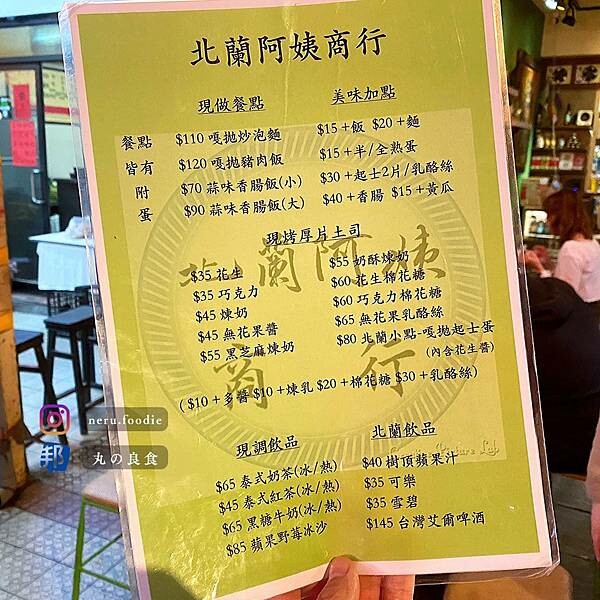 北蘭阿姨商行
現做餐點
餐點皆有附蛋
$110 嘎拋炒泡麵
$120 嘎拋豬肉飯
$70 蒜味香腸飯(小)
$90 蒜味香腸飯(大)
美味加點
$15+飯 $20+麵
$15+半/全熟蛋
$30+起士2片/乳酪絲
$40+香腸 $15+黃瓜
現烤厚片土司
$35 花生
$35 巧克力
$45 煉奶
$45 無花果醬
$55 黑芝麻煉奶
$55 奶酥煉奶
$60 花生棉花糖
$60 巧克力棉花糖
$65 無花果乳酪絲
$80 北蘭小點-嘎拋起士蛋
(內含花生醬)
($10+多醬 $10+煉乳 $20+棉花糖 $30+乳酪絲)
現調飲品
$65 泰式奶茶(冰/熱)
$45 泰式紅茶(冰/熱)
$65 黑糖牛奶(冰/熱)
$85 蘋果野莓冰沙
北蘭飲品
$40 樹頂蘋果汁
$35 可樂
$35 雪碧
$145 台灣艾爾啤酒
北蘭阿姨
商行
neru.foodie
邦
丸の良食